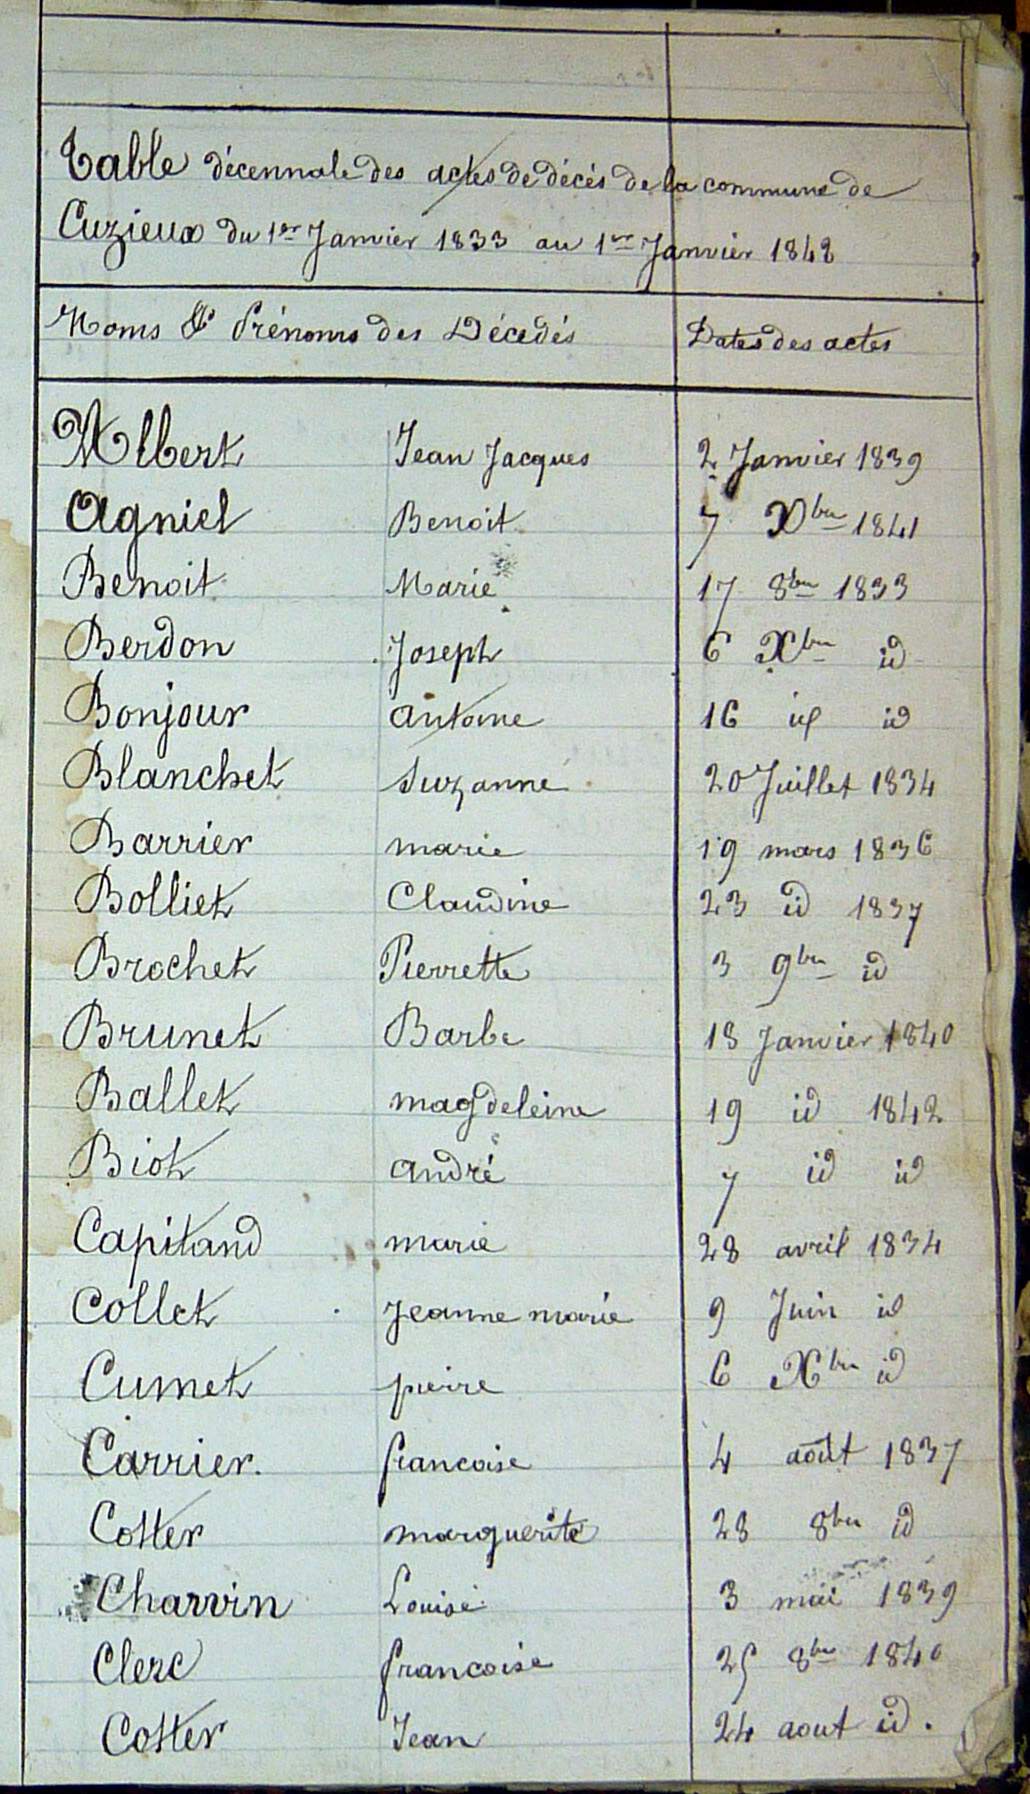 Table décennale des actes de décés de la commune de
Cuzieux du 1er Janvier 1833 au 1er Janvier 1842
Noms & Prénoms des Décedés Dates des actes
Albert Jean Jacques 2 Janvier 1839
Agniel Benoit 7 Xbre 1841
Benoit Marie 17 8bre 1833
Berdon Joseph 6 Xbre id
Bonjour antoine 16 id id
Blanchet Suzanne 20 Juillet 1834
Barrier marie 19 mars 1836
Bolliet Claudine 23 id 1837
Brochet Pierrette 3 9bre id
Brunet Barbe 18 Janvier 1840
Ballet magdeleine 19 id 1842
Biot andré 7 id id
Capitand marie 28 avril 1834
Collet Jeanne marie 9 Juin id
Cumet pierre 6 Xbre id
Carrier. francoise 4 août 1837
Cotter marguerite 28 8bre id
Charvin Louise 3 mai 1839
Clerc francoise 25 8bre 1840
Cotter Jean 24 aout id.